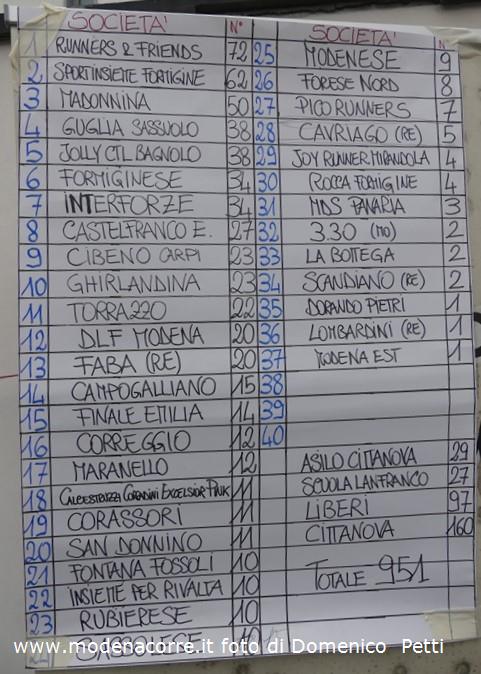 SOCIETA' N°
1 RUNNERS & FRIENDS 72
2 SPORTINSIEME FORMIGINE 62
3 MADONNINA 50
4 GUGLIA SASSUOLO 38
5 JOLLY CTL BAGNOLO 38
6 FORMIGINESE 34
7 INTERFORZE 34
8 CASTELFRANCO E. 27
9 CIBENO CARPI 23
10 GHIRLANDINA 23
11 TORRAZZO 22
12 DLF MODENA 20
13 FABA (RE) 20
14 CAMPOGALLIANO 15
15 FINALE EMILIA 14
16 CORREGGIO 12
17 MARANELLO 12
18 CALCESTRUZZI CORRADINI EXCELSIOR PINK 11
19 CORASSORI 11
20 SAN DONNINO 11
21 FONTANA FOSSOLI 10
22 INSIEME PER RIVALTA 10
23 RUBIERESE 10
SASSOLESE
SOCIETA' N°
25 MODENESE 9
26 FORESE NORD 8
27 PICO RUNNERS 7
28 CAVRIAGO (RE) 5
29 JOY RUNNER MIRANDOLA 4
30 ROCCA FORMIGINE 4
31 MDS PANARIA 3
32 3.30 (MO) 2
33 LA BOTTEGA 2
34 SCANDIANO (RE) 2
35 DORANDO PIETRI 1
36 LOMBARDINI (RE) 1
37 MODENA EST 1
38
39
40
ASILO CITTANOVA 29
SCUOLA LANFRANCO 27
LIBERI 97
CITTANOVA 160
TOTALE 951
www.modenacorre.it foto di Domenico Petti